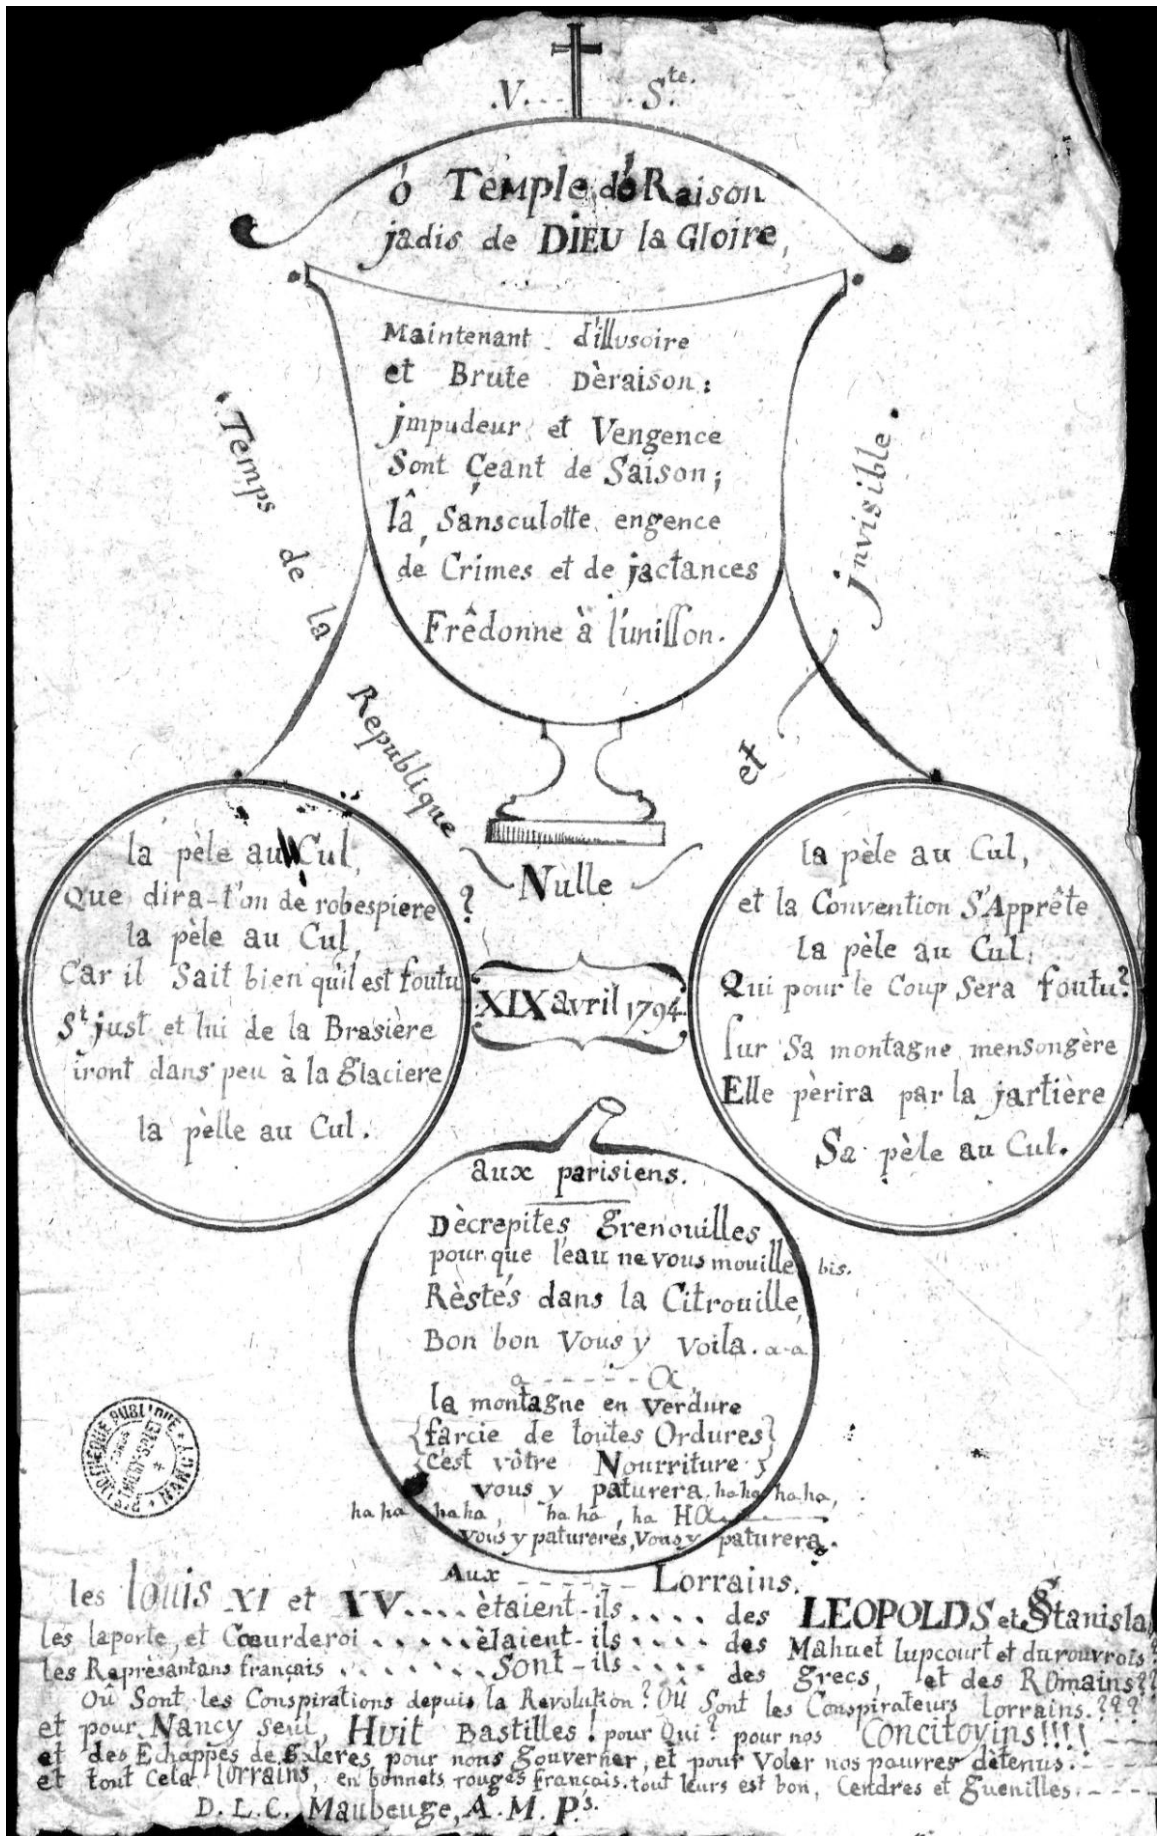 .V. - - - . Ste.
ô Temple dé Raison
jadis de DIEU la Gloire,
Maintenant d'illusoire
et Brute Dèraison:
jmpudeur et Vengence
Sont Çeant de Saison;
lâ Sansculotte engence
de Crimes et de jactances
Frêdonne à l'unisson.
.Temps de la Republique Nulle et jnvisible.
la pèle au Cul,
Que dira-t'on de robespiere ?
la pèle au Cul,
Car il Sait bien qu'il est foutu
St just et lui de la Brasière
iront dans peu à la glaciere
la pèlle au Cul.
XIX avril 1794.
la pèle au Cul,
et la Convention S'Apprête
la pèle au Cul,
Qui pour le Coup Sera foutu?
sur Sa montagne mensongère
Elle pèrira par la jartière
Sa pèle au Cul.
aux parisiens.
Dècrepites grenouilles
pour que l'eau ne vous mouille bis.
Rèstés dans la Citrouille,
Bon bon Vous y voila. a-a
a - - - - - a
la montagne en verdure
{farcie de toutes Ordures}
{c'est vôtre Nourriture }
vous y paturera. ha ha ha ha,
ha ha ha ha, ha ha, ha HA
vous y paturerés, Vous y paturera.
Aux - - - - - - Lorrains.
les louis XI et XV.... ètaient-ils .... des LEOPOLDS et Stanislas
les laporte, et Cœurderoi ..... ètaient-ils .... des Mahuet lupcourt et durouvrois?
les Reprèsantans français ....... Sont-ils .... des grecs, et des ROmains??
Oû Sont les Conspirations depuis la Revolution? Oû Sont les Conspirateurs lorrains.???
et pour Nancy seul, Huit Bastilles! pour Qui? pour nos Concitoyins!!!! ---
et des Èchappés de galeres pour nous gouverner, et pour Voler nos pauvres dètenus. - - - -
et tout Cela lorrains, en bonnets rouges français. tout leurs est bon, Cendres et guenilles. - - - -
D. L. C. Maubeuge, A. M. P.s.
BIBLIOTHÈQUE PUBLIQUE * NANCY *